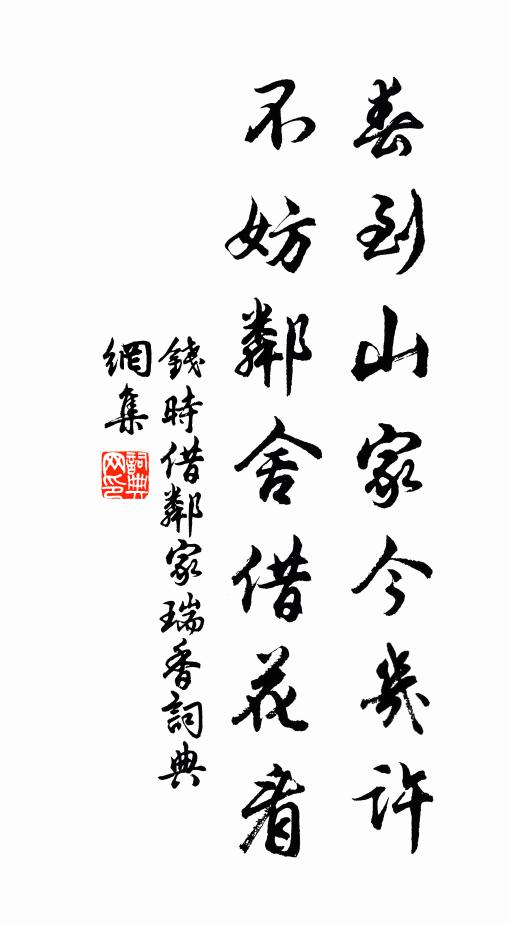 春到山家今幾許
不妨鄰舍借花看
錢時借鄰家瑞香詞典
網集
詞典網印